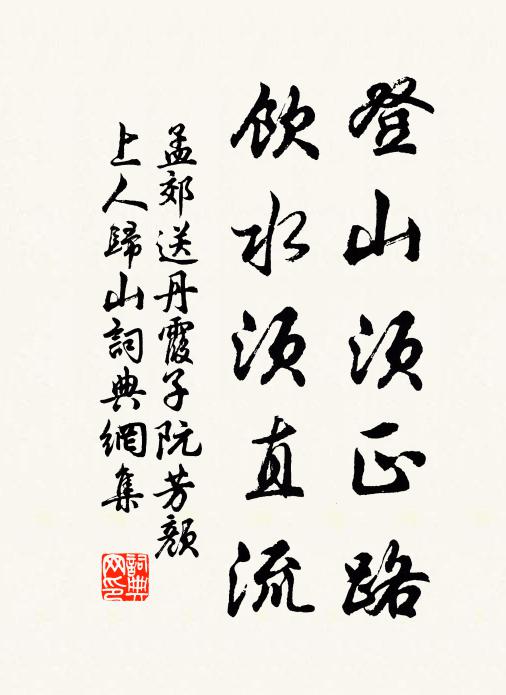 登山須正路
飲水須直流
孟郊送丹霞子阮芳顏
上人歸山詞典網集
詞典
网印